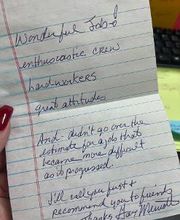 Wonderful Job!
enthusiastic crew
hard workers
great attitudes
And - didn't go over the
estimate for a job that
became more difficult
as it progressed.
I'll call you first &
recommend you to friends
Thanks